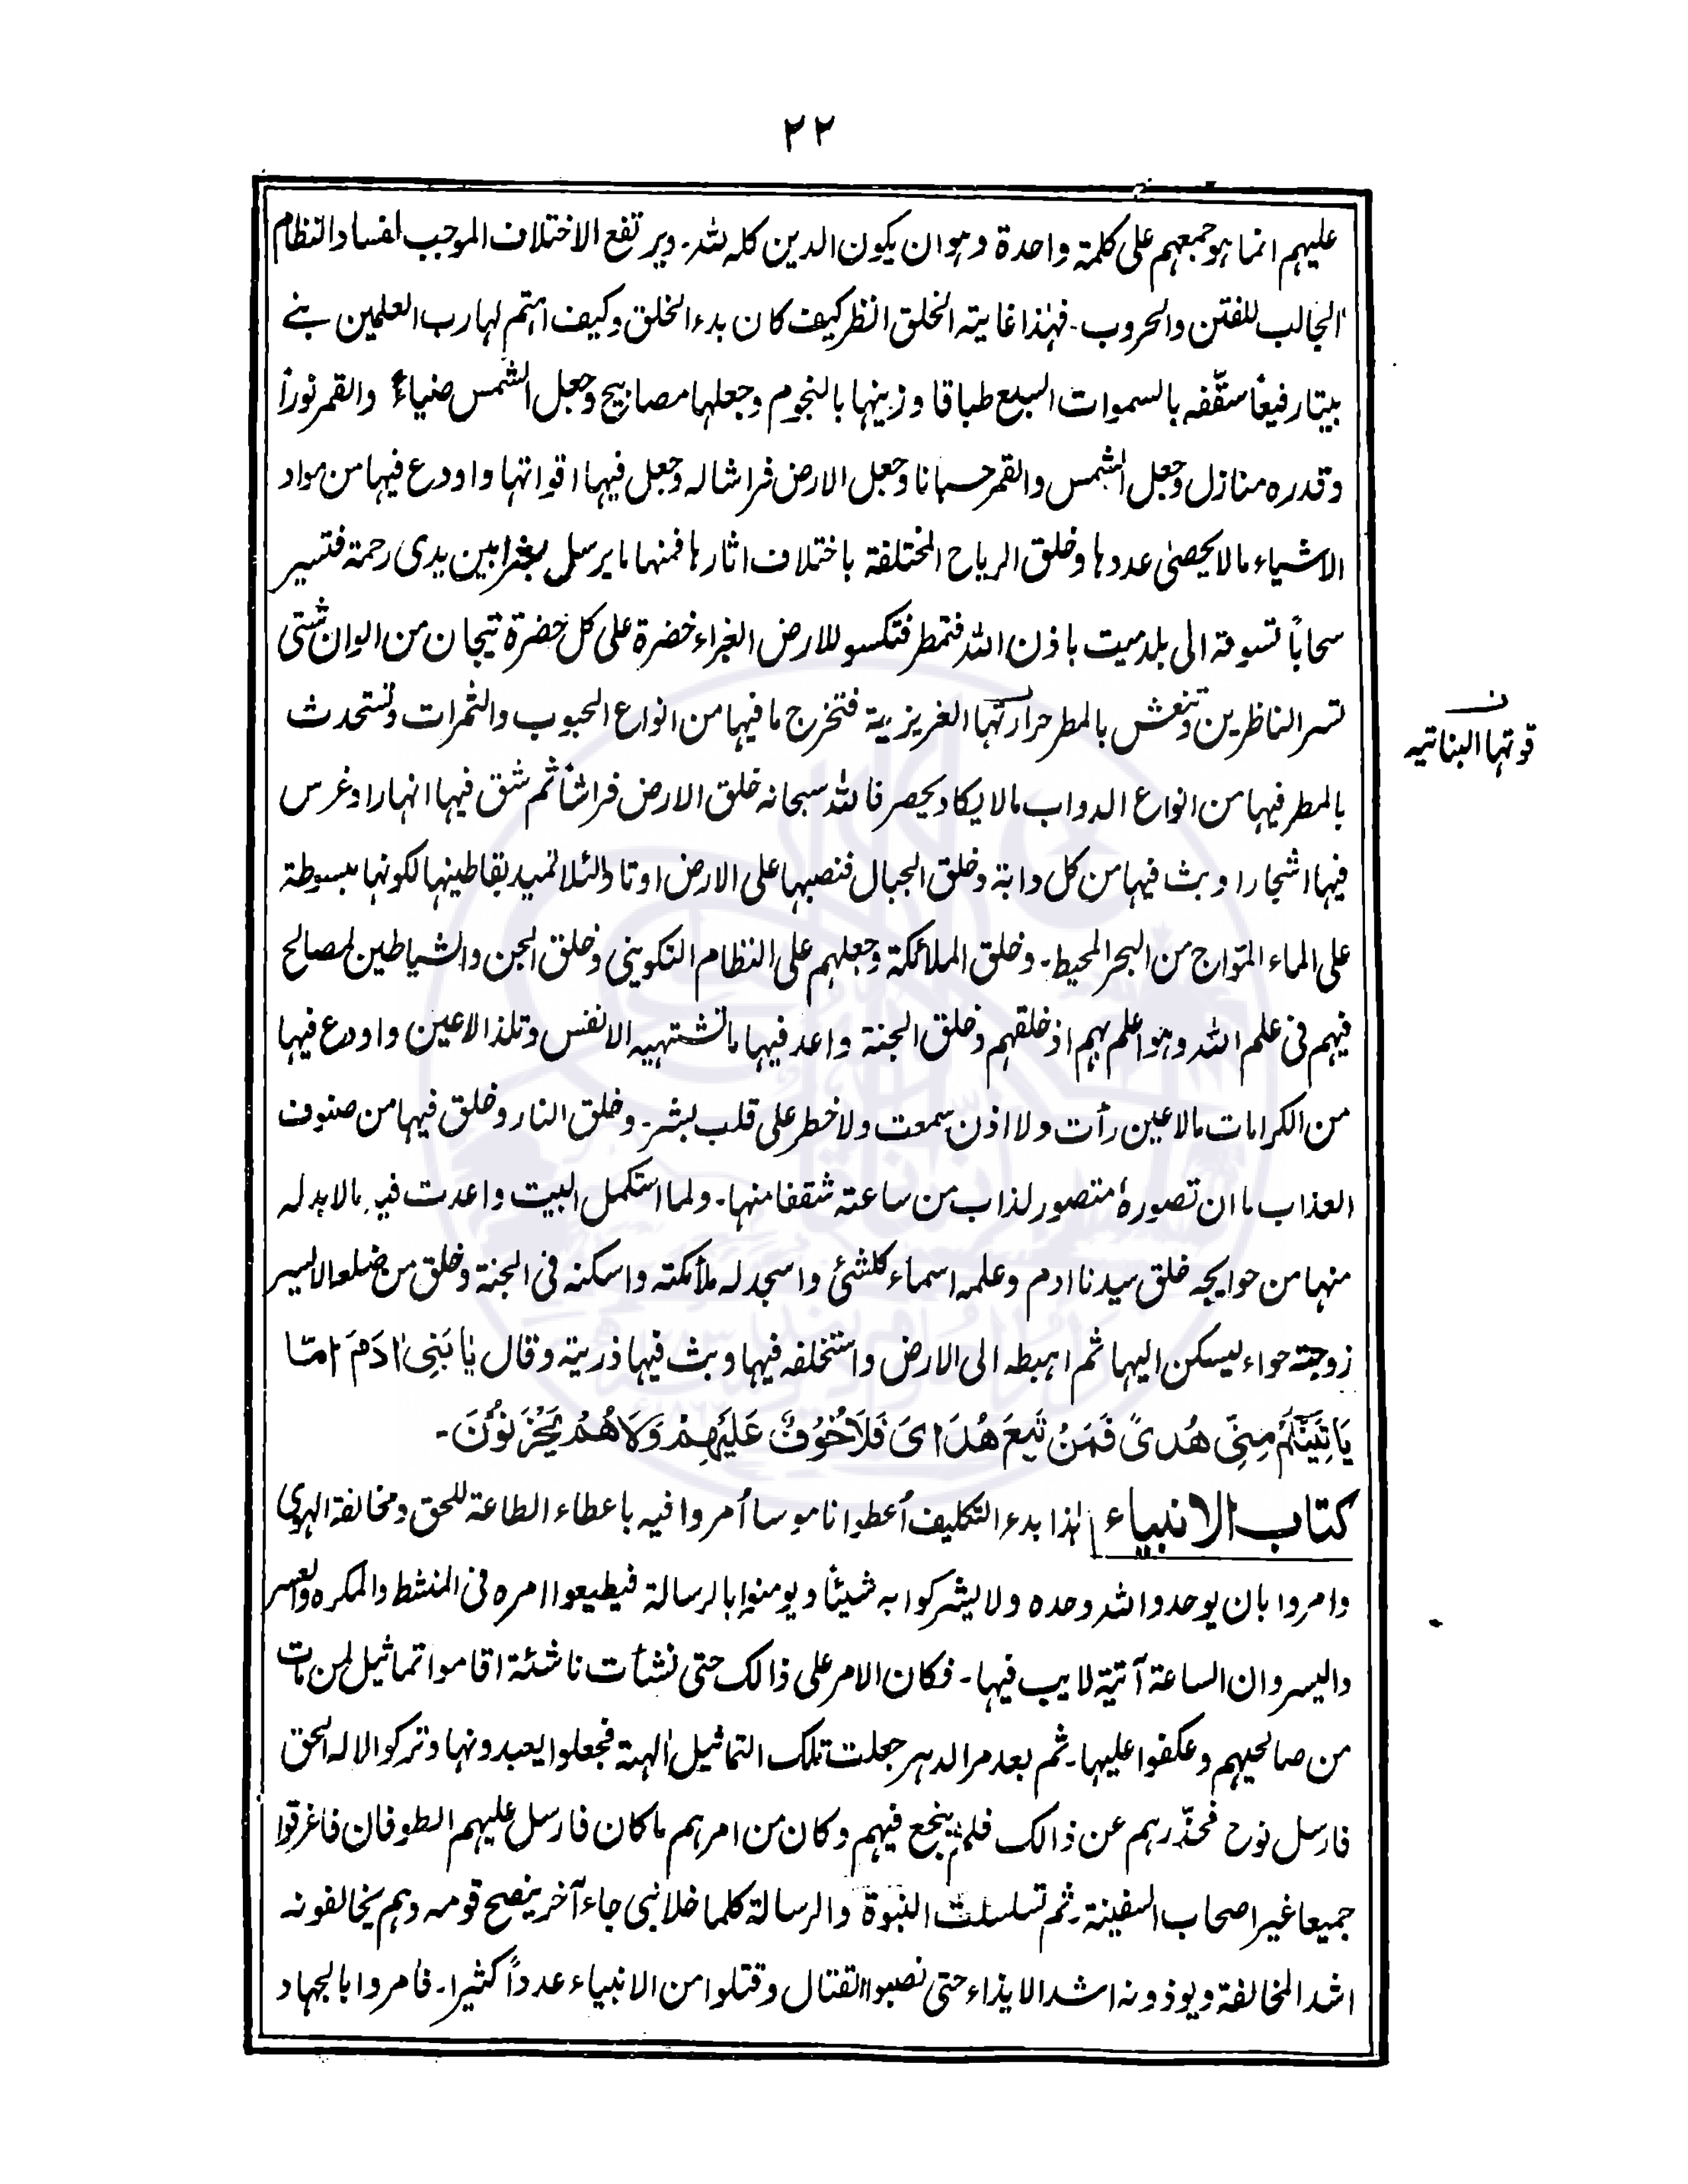 ٢٢
عليهم انما هو جمعهم على كلمة واحدة وهو ان يكون الدين كله لله۔ ويرتفع الاختلاف الموجب لفساد النظام
الجالب للفتن والحروب۔ فهٰذا غاية الخلق انظر كيف كان بدء الخلق وكيف اهتم لها رب العلمين بنے
بيتا رفيعاً سقّفه بالسموات السبع طباقا وزينها بالنجوم وجعلها مصابيح وجعل الشمس ضياءً والقمر نوراً
وقدره منازل وجعل الشمس والقمر حسبانا وجعل الارض فراشا له وجعل فيها اقواتها واودع فيها من مواد
الاشياء مالا يحصىٰ عددها وخلق الرياح المختلفة باختلاف اثارها فمنها ما يرسل بشرا بين يدى رحمة فتسير
سحاباً تسوقه الى بلد ميت باذن الله فتمطر فتكسو للارض الغبراء خضرة على كل خضرة تيجان من الوان شتّى
تسر الناظرين وتنعش بالمطر حرارتها الغريزية فتخرج ما فيها من انواع الحبوب والثمرات وتستحدث
نـ
قوتها النباتيه
بالمطر فيها من انواع الدواب مالا يكاد يحصر فالله سبحانه خلق الارض فراشاً ثم شق فيها انهارا وغرس
فيها اشجارا وبث فيها من كل دابة وخلق الجبال فنصبها على الارض اوتادا لئلا تميد بقاطنيها لكونها مبسوطة
على الماء الموّاج من البحر المحيط۔ وخلق الملائكة وجعلهم على النظام التكوينى وخلق الجن والشياطين لمصالح
فيهم فى علم الله وهو اعلم بهم اذ خلقهم وخلق الجنة واعد فيها ما تشتهيه الانفس وتلذ الاعين واودع فيها
من الكرامات مالا عين رأت ولا اذن سمعت ولا خطر على قلب بشر۔ وخلق النار وخلق فيها من صنوف
العذاب ما ان تصوره متصور لذاب من ساعته شفقا منها۔ ولما استكمل البيت واعدت فيه مالابد له
منها من حوايجه خلق سيدنا ادم وعلمه اسماء كلشئ واسجد له ملائكته واسكنه فى الجنة وخلق من ضلعه الايسر
زوجته حواء ليسكن اليها ثم اهبطه الى الارض واستخلفه فيها وبث فيها ذريته وقال يٰا بَنِىْ اٰدَمَ امّا
يَاتِيَنَّكُمْ مِنِّىْ هُدىً فَمَنْ تَبِعَ هُدَاىَ فَلَا خَوْفٌ عَلَيْهِمْ وَلَا هُمْ يَحْزَنُوْنَ۔
كتاب الانبياء | لذا بدء التكليف اُعطوا ناموسا اُمروا فيه باعطاء الطاعة للحق ومخالفة الهوى
وامروا بان يوحدوا الله وحده ولا يشركوا به شيئاً ويومنوا بالرسالة فيطيعوا امره فى المنشط والمكره والعسر
واليسر وان الساعة آتية لا يب فيها۔ فكان الامر على ذالك حتى نشأت ناشئة اقاموا تماثيل لمن مات
من صالحيهم وعكفوا عليها۔ ثم بعد مر الدهر جعلت تلك التماثيل اٰلهة فجعلوا يعبدونها وتركوا الاله الحق
فارسل نوح فحذّرهم عن ذالك فلم ينجع فيهم وكان من امرهم ما كان فارسل عليهم الطوفان فاغرقوا
جميعا غير اصحاب السفينة۔ ثم تسلسلت النبوة والرسالة كلما خلا نبى جاء آخر ينصح قومه وهم يخالفونه
اشد المخالفة ويوذونه اشد الايذاء حتى نصبوا القتال وقتلوا من الانبياء عدداً كثيرا۔ فامروا بالجهاد